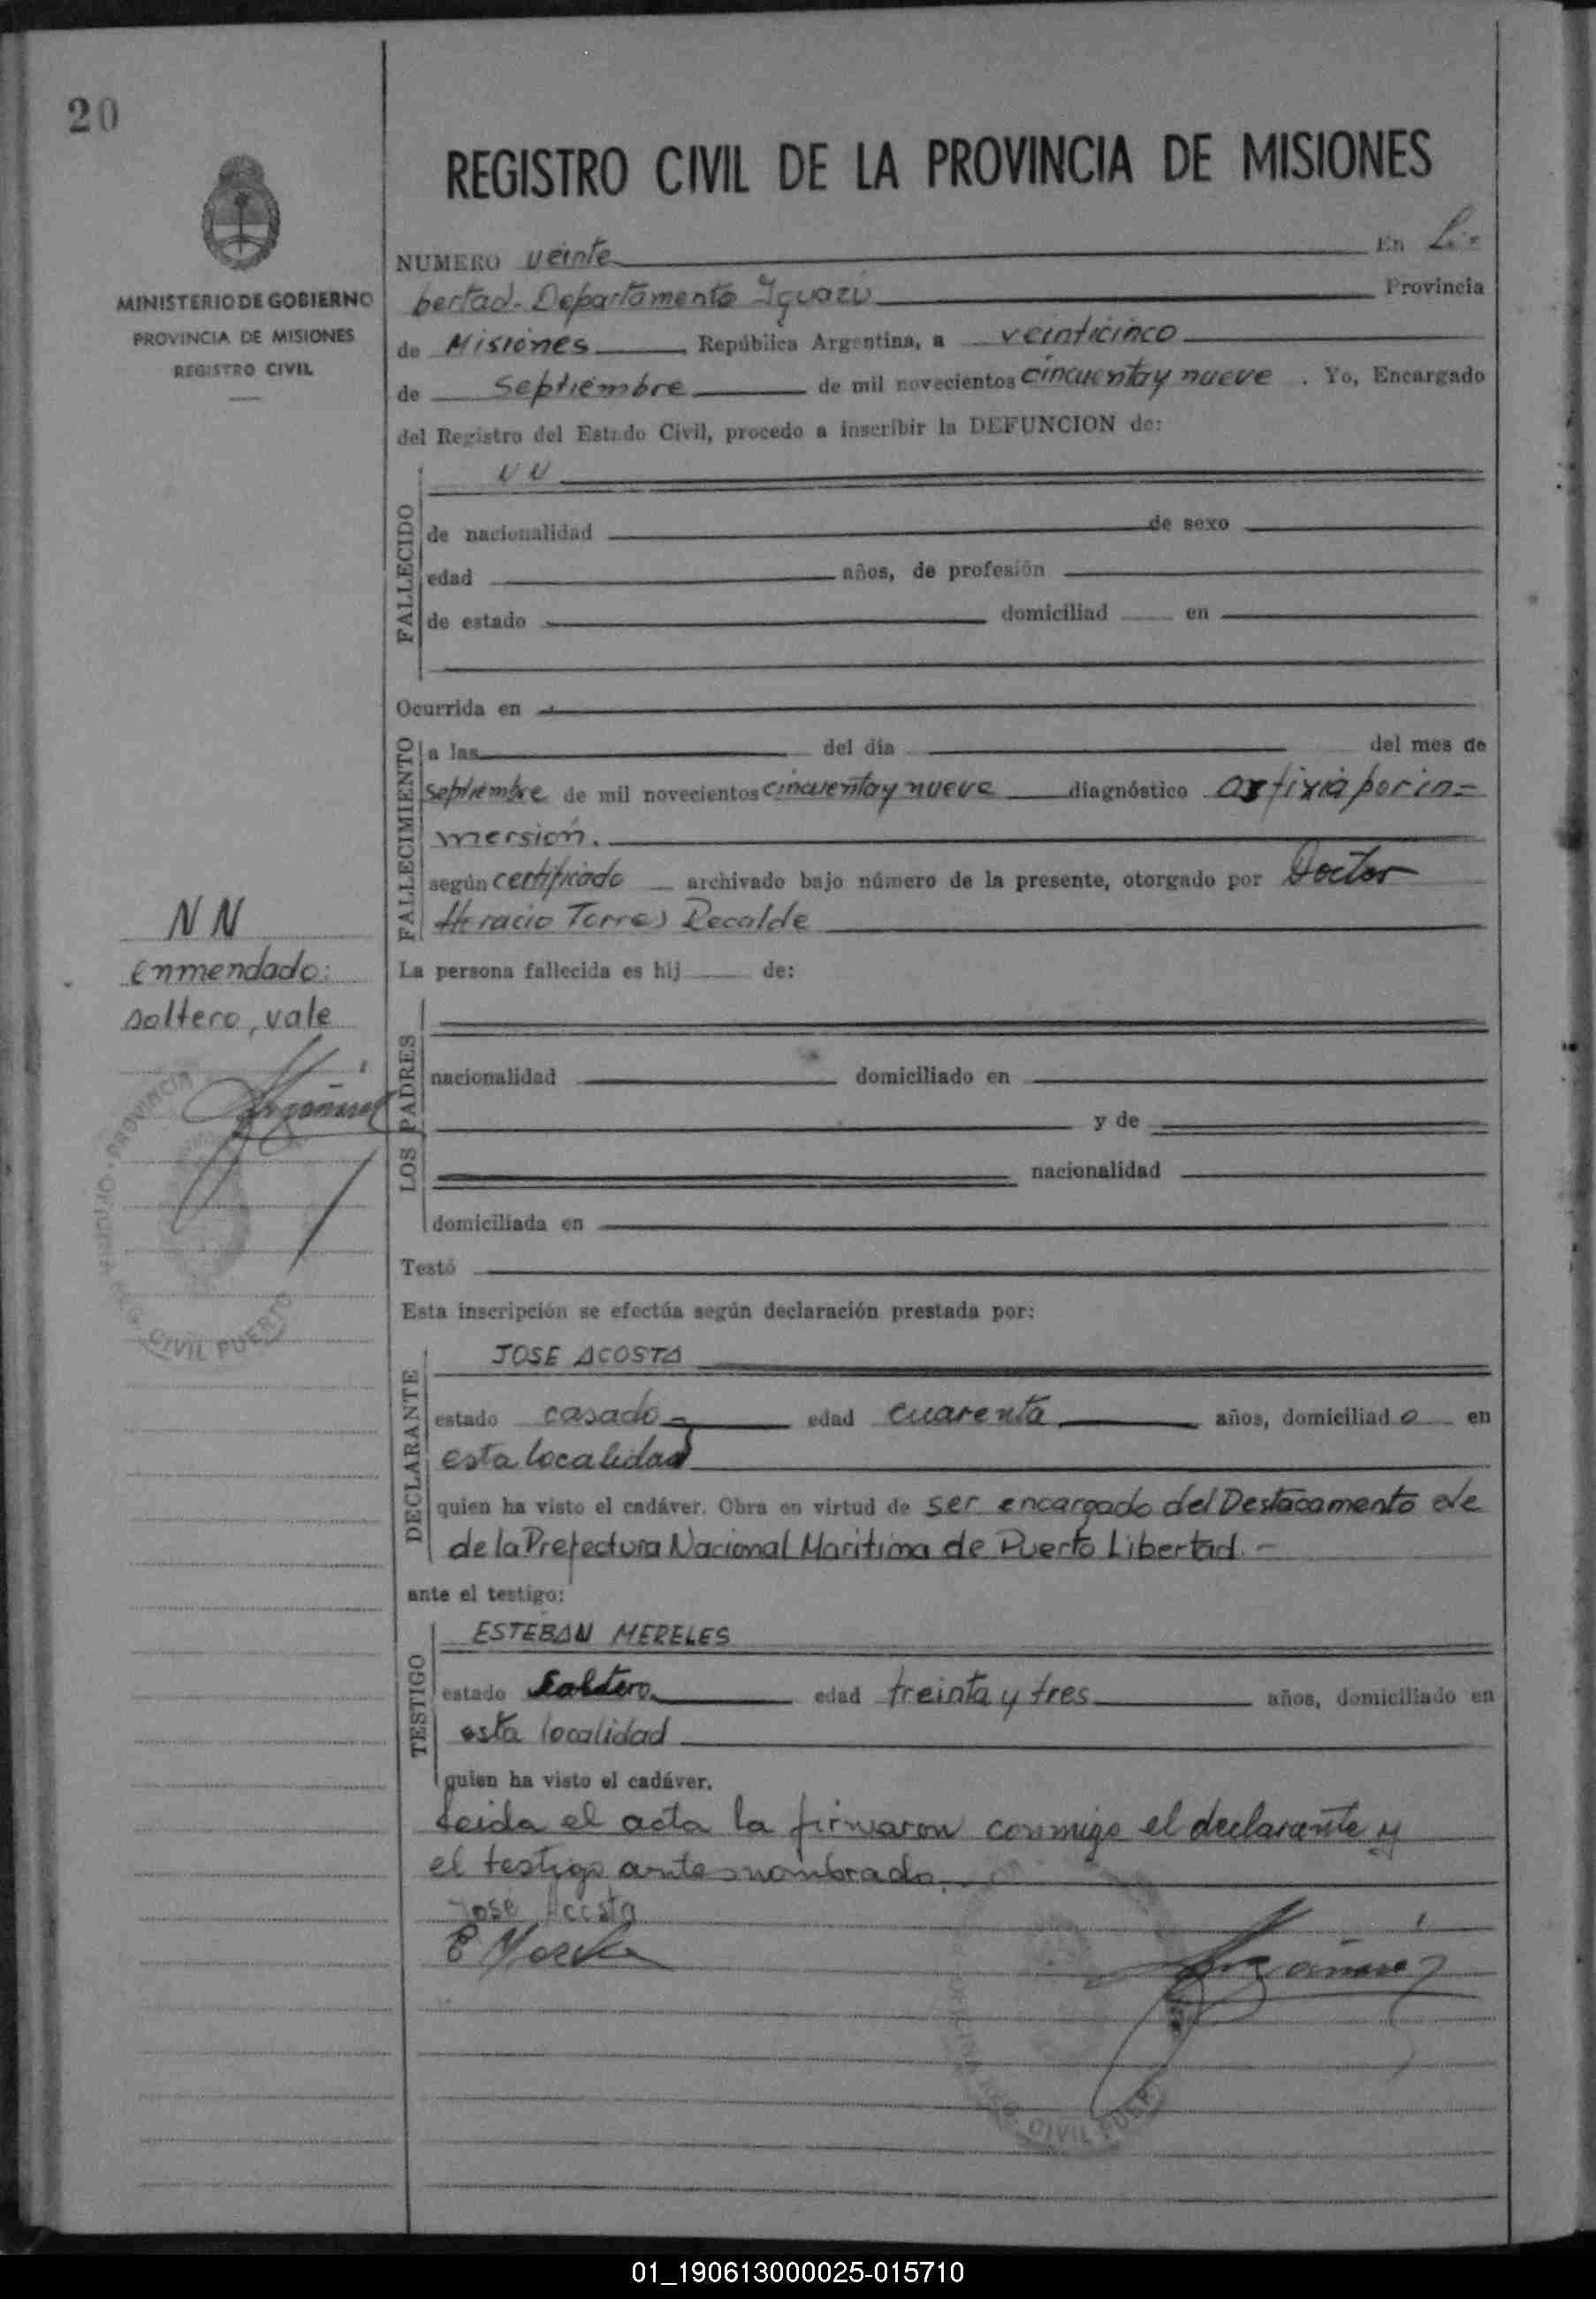 20
REGISTRO CIVIL DE LA PROVINCIA DE MISIONES
MINISTERIO DE GOBIERNO
PROVINCIA DE MISIONES
REGISTRO CIVIL
NUMERO veinte En Li=
bertad. Departamento Iguazú Provincia
de Misiones República Argentina, a veinticinco
de Septiembre de mil novecientos cincuenta y nueve . Yo, Encargado
del Registro del Estado Civil, procedo a inscribir la DEFUNCION de:
FALLECIDO
NN
de nacionalidad de sexo
edad años, de profesión
de estado domiciliad en
Ocurrida en
FALLECIMIENTO
a las del día del mes de
septiembre de mil novecientos cincuenta y nueve diagnóstico asfixia por in=
mersión.
según certificado archivado bajo número de la presente, otorgado por Doctor
Horacio Torres Recalde
NN
enmendado:
soltero, vale
La persona fallecida es hij de:
LOS PADRES
nacionalidad domiciliado en
y de
nacionalidad
domiciliada en
Testó
PROVINCIA
CIVIL PUERTO
Esta inscripción se efectúa según declaración prestada por:
DECLARANTE
JOSE ACOSTA
estado casado edad cuarenta años, domiciliad o en
esta localidad
quien ha visto el cadáver. Obra en virtud de ser encargado del Destacamento de
de la Prefectura Nacional Marítima de Puerto Libertad.-
ante el testigo:
TESTIGO
ESTEBAN MERELES
estado soltero edad treinta y tres años, domiciliado en
esta localidad
quien ha visto el cadáver.
Leida el acta la firmaron conmigo el declarante y
el testigo antes nombrado.
José Acosta
CIVIL PUER
01_190613000025-015710